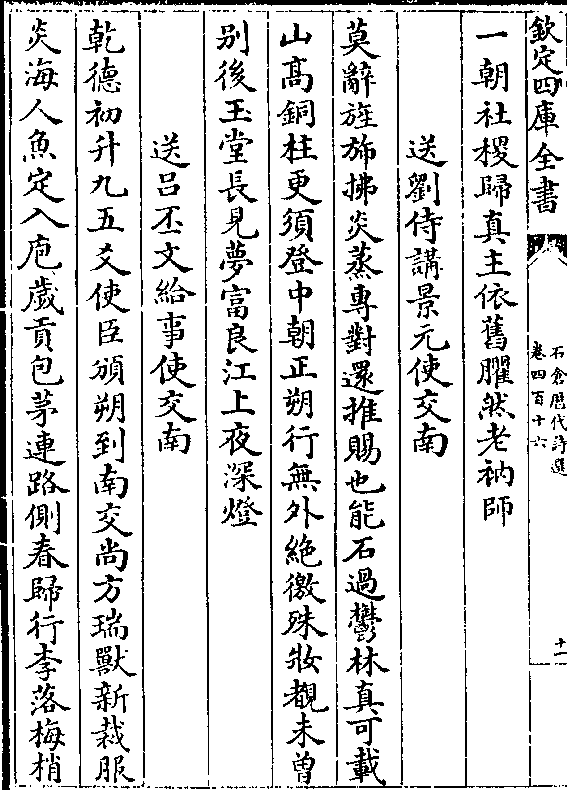 欽定四庫全書
石倉歴代詩選
卷四百十六
十一
一朝社稷歸真主依舊臞然老衲師
送劉侍講景元使交南
莫辭旌斾拂炎蒸專對還推賜也能石過鬱林真可載
山髙銅柱更須登中朝正朔行無外絶徼殊妝覩未曾
别後玉堂長見夢富良江上夜深燈
送吕丕文給事使交南
乾德初升九五爻使臣頒朔到南交尚方瑞獸新裁服
炎海人魚定入庖歳貢包茅連路側春歸行李落梅梢